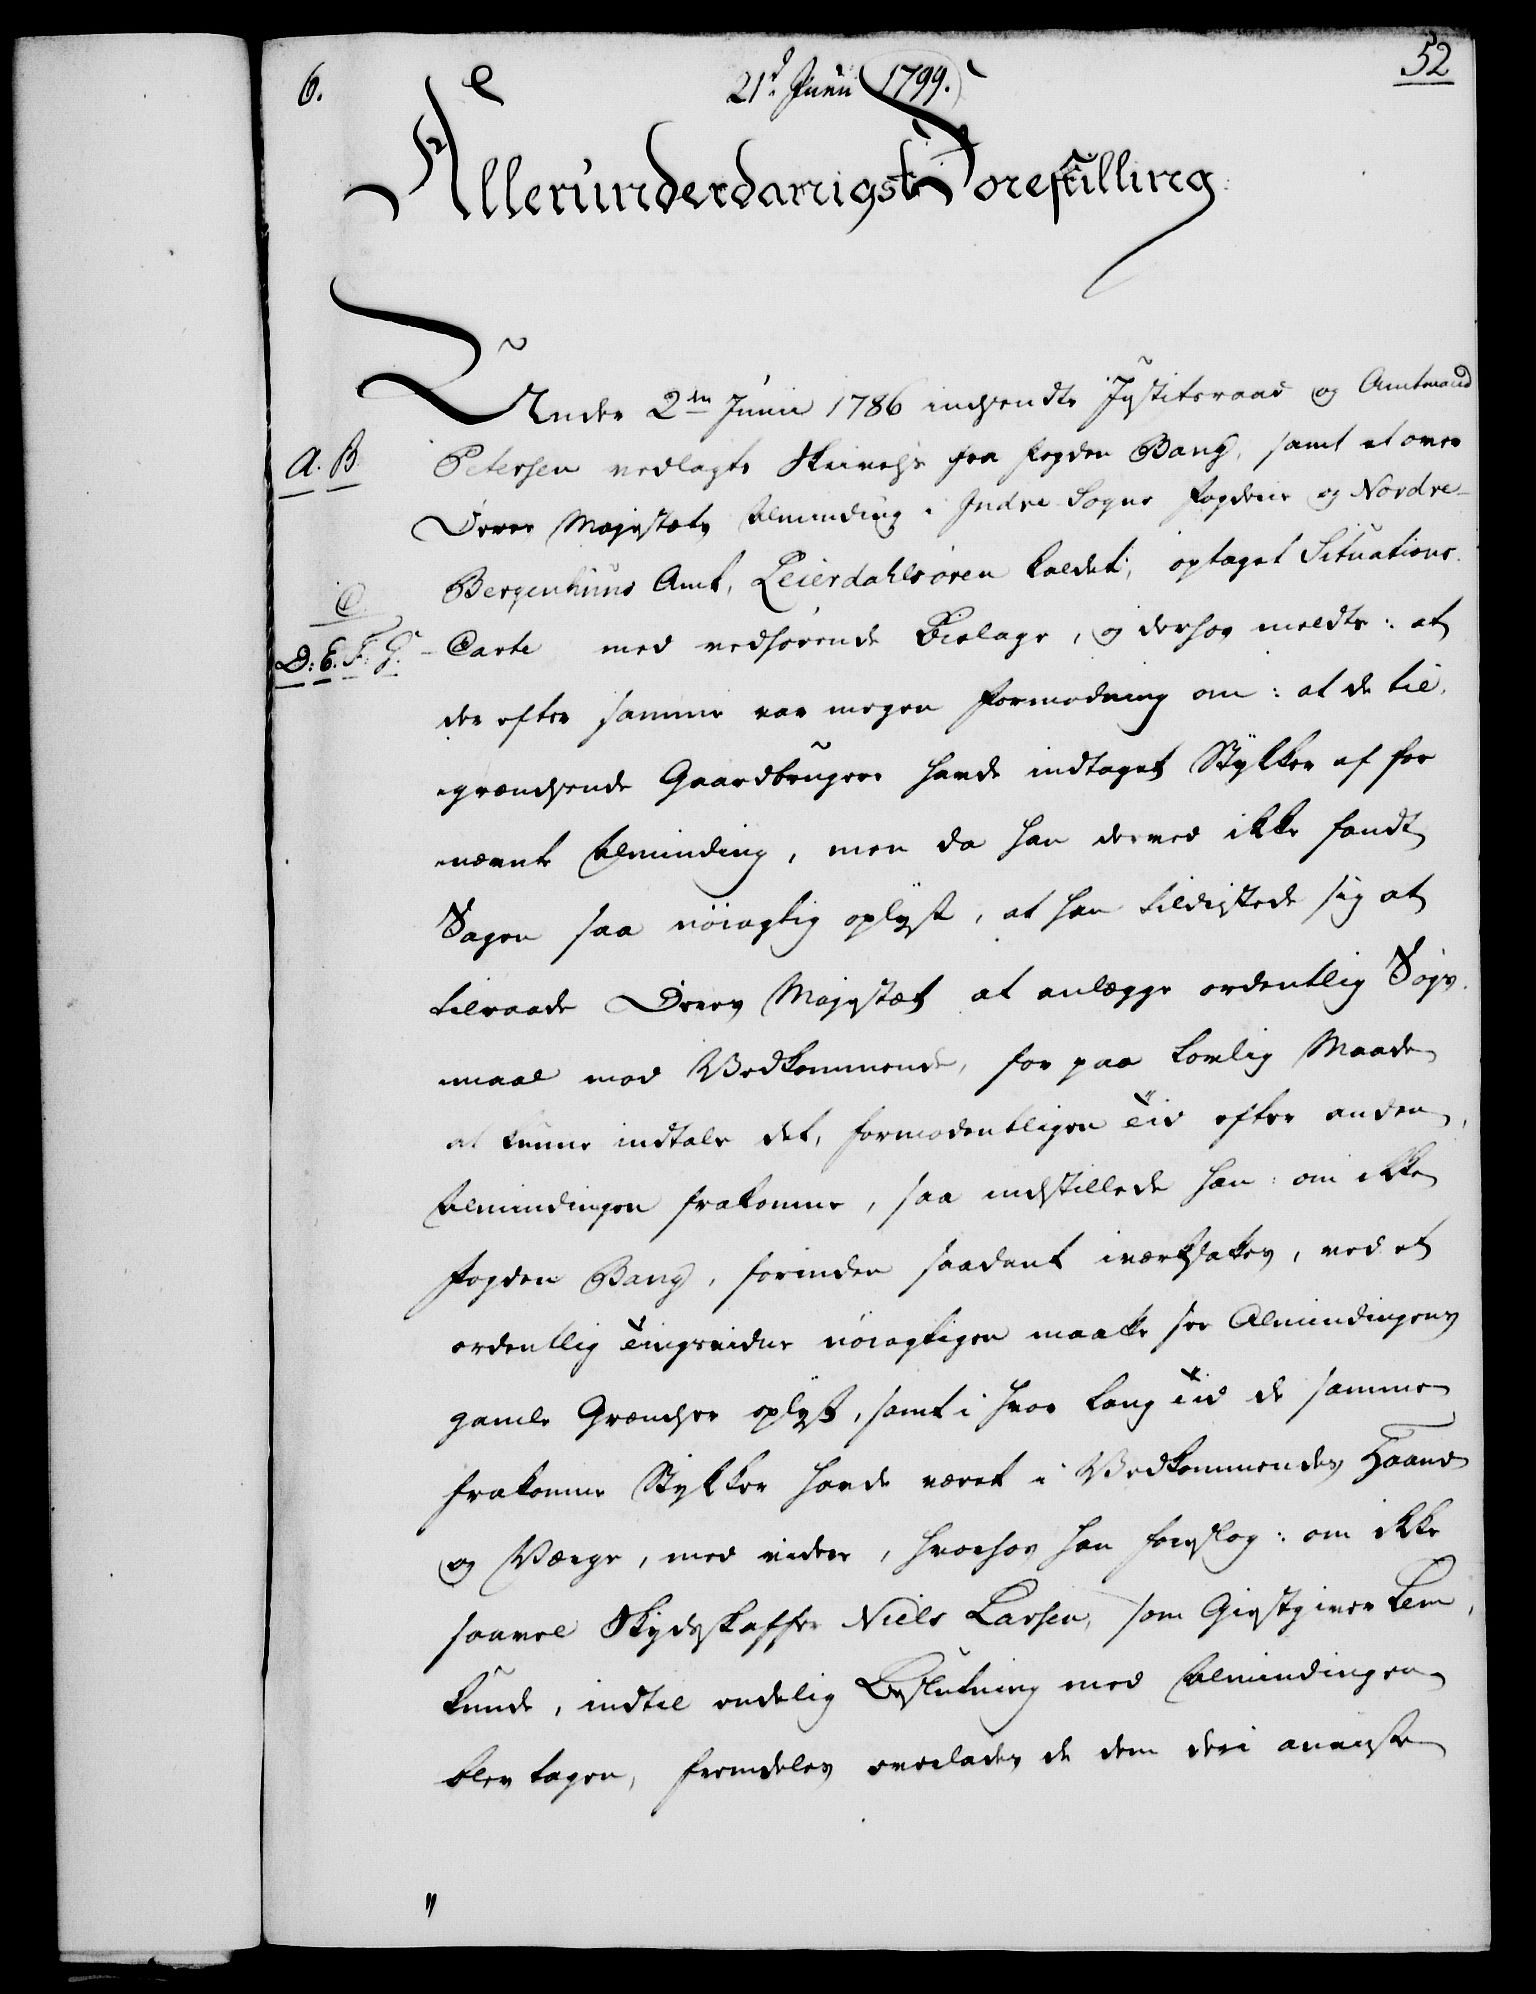 6.
21d Junii 1799.
52
Allerunderdanigst Forestilling
Under 2den Junii 1786 indsendte Justitsraad og Amtmand
A. B.
Petersen vedlagte Skrivelse fra Fogden Bang, samt et over
Deres Majestæts Alminding i Indre Sogns Fogderie og Nordre
Bergenhuus Amt, Leierdahlsøren kaldet, optaget Situations
C.
D: E. F: G.
Carte med vedhørende Bielage, og derhos meldte: at
der efter samme var megen Formodning om: at de til,
grændsende Gaardbrugere havde indtaget Stykker af for
nævnte Alminding, men da han derved ikke fandt
Sagen saa nöiagtig oplyst, at han tildristede sig at
tilraade Deres Majestæt at anlægge ordentlig Søgs,
maal mod Vedkommende, for paa lovlig Maade
at kunne indtale det, formodentligen Tid efter anden,
Almindingen frakomne, saa indstillede han: om ikke
Fogden Bang, forinden saadant iværksattes, ved et
ordentlig Tingsvidne nöiagtigen maatte see Almindingens
gamle Grændser oplyst, samt i hvor lang Tid de samme
frakomne Stykker havde været i Vedkommendes Haand
og Værge, med videre, hvorhos han foreslog: om ikke
saavel Skydsskaffer Niels Larsen, som Giestgiver Lem,
kunde, indtil endelig Beslutning med Almindingen
blev tagen, fremdeles overlades de dem deri anviiste
"